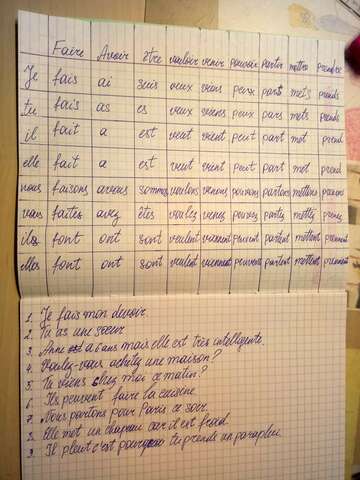 Faire Avoir être vouloir venir pouvoir partir mettre prendre
Je fais ai suis veux viens peux pars mets prends
tu fais as es veux viens peux pars mets prends
il fait a est veut vient peut part met prend
elle fait a est veut vient peut part met prend
nous faisons avons sommes voulons venons pouvons partons mettons prenons
vous faites avez êtes voulez venez pouvez partez mettez prenez
ils font ont sont veulent viennent peuvent partent mettent prennent
elles font ont sont veulent viennent peuvent partent mettent prennent
1. Je fais mon devoir.
2. Tu as une sœur
3. Anne a 6 ans mais elle est très intelligente.
4. Voulez-vous achetez une maison?
5. Tu viens chez moi ce matin?
6. Ils peuvent faire la cuisine.
7. Nous partons pour Paris ce soir.
8. Elle met un chapeau car il est froid.
9. Il pleut c'est pourquoi tu prends un parapluie.